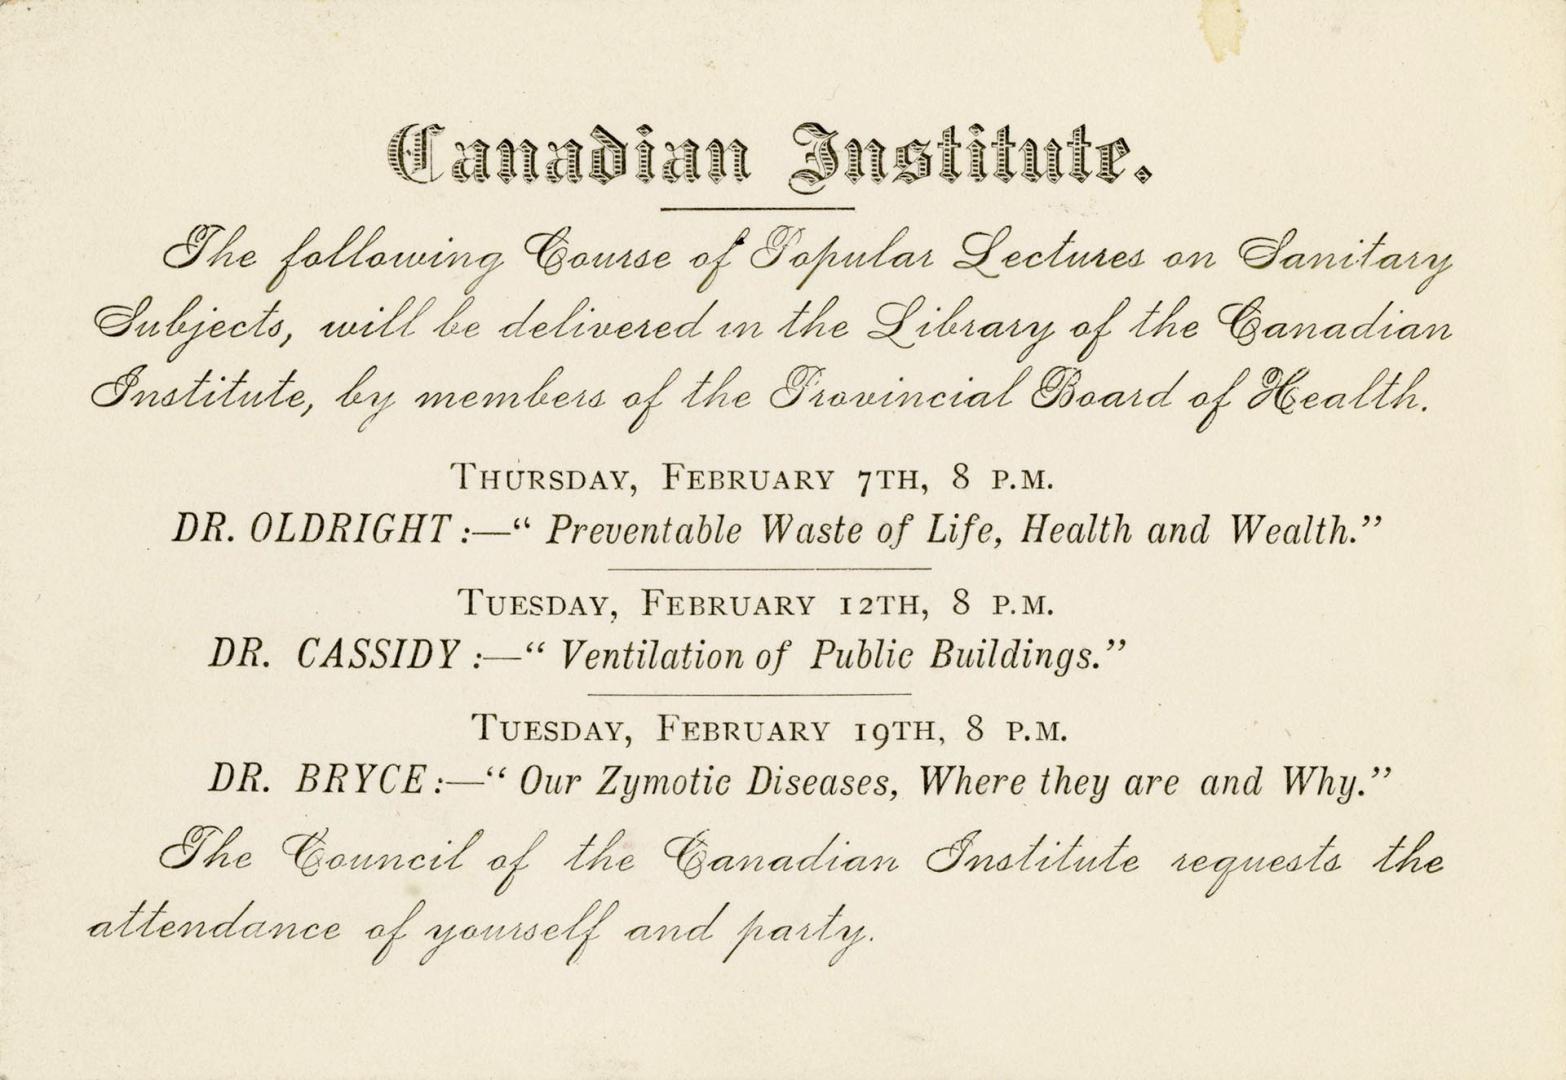 Canadian Institute.
The following Course of Popular Lectures on Sanitary
Subjects, will be delivered in the Library of the Canadian
Institute, by members of the Provincial Board of Health.
THURSDAY, FEBRUARY 7TH, 8 P.M.
DR. OLDRIGHT :—“ Preventable Waste of Life, Health and Wealth.”
TUESDAY, FEBRUARY 12TH, 8 P.M.
DR. CASSIDY :—“ Ventilation of Public Buildings.”
TUESDAY, FEBRUARY 19TH, 8 P.M.
DR. BRYCE :—“ Our Zymotic Diseases, Where they are and Why.”
The Council of the Canadian Institute requests the
attendance of yourself and party.